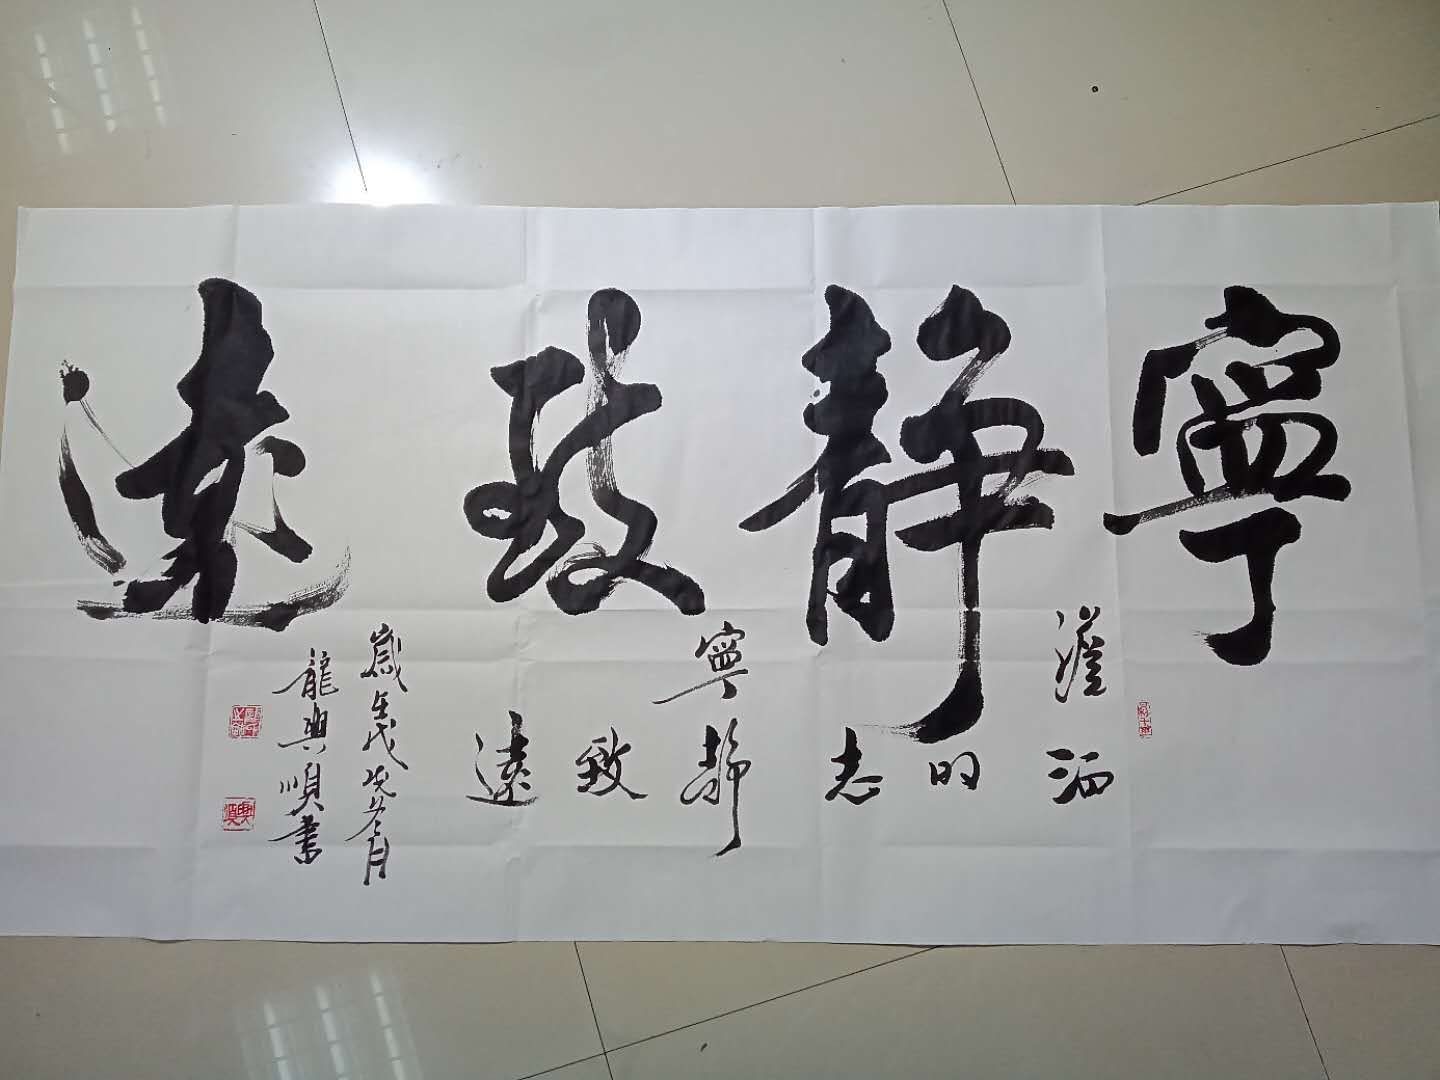 寧靜致遠
澹泊
明志
寧靜
致
遠
歲在戊戌冬月
龍興順書